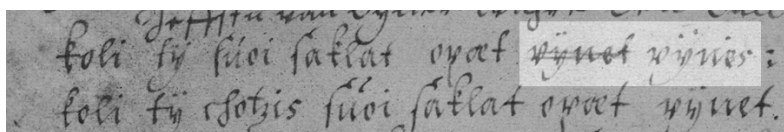 koli tÿ suoi saklat opæt vÿnet vÿnes:
koli tÿ chotzis suoi saklat opæt vÿnet.